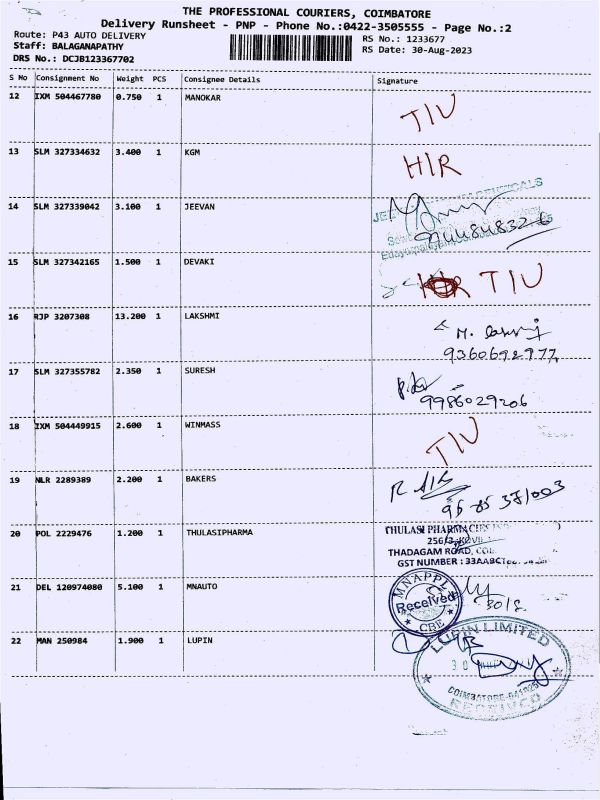 THE PROFESSIONAL COURIERS, COIMBATORE
Delivery Runsheet - PNP - Phone No.:0422-3505555 - Page No.:2
Route: P43 AUTO DELIVERY RS No.: 1233677
Staff: BALAGANAPATHY RS Date: 30-Aug-2023
DRS No.: DCJB123367702
S No Consignment No Weight PCS Consignee Details Signature
12 IXM 504467780 0.750 1 MANOKAR TIU
13 SLM 327334632 3.400 1 KGM HIR
14 SLM 327339042 3.100 1 JEEVAN
15 SLM 327342165 1.500 1 DEVAKI TIU
16 RJP 3207308 13.200 1 LAKSHMI
9360692977
17 SLM 327355782 2.350 1 SURESH
9986029206
18 IXM 504449915 2.600 1 WINMASS TIU
19 NLR 2289389 2.200 1 BAKERS
20 POL 2229476 1.200 1 THULASIPHARMA THULASI PHARMA
THADAGAM ROAD,
GST NUMBER :
21 DEL 120974080 5.100 1 MNAUTO Received
CBE
30/8
22 MAN 250984 1.900 1 LUPIN LUPIN LIMITED
RECEIVED